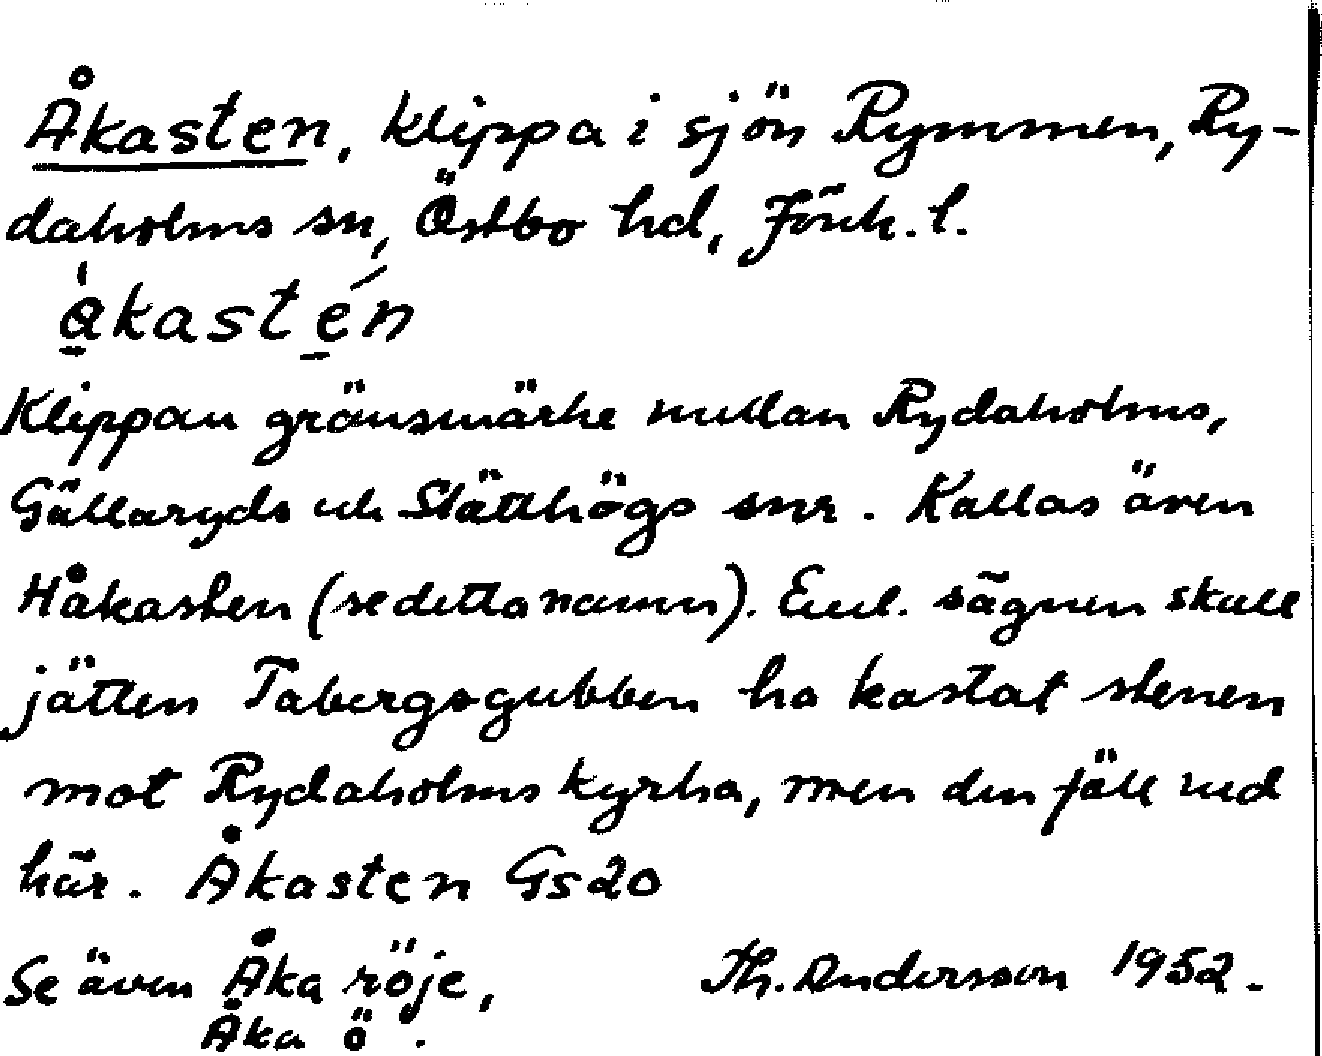 Åkasten, klippa i sjön Rymmen, Ry-
daholms sn, Östbo hd, Jönk. l.
åkastén
Klippan gränsmärke mellan Rydaholms,
Gällaryds och Slätthögs snr. Kallas även
Håkasten (se detta namn). Enl. sägnen skall
jätten Tabergsgubben ha kastat stenen
mot Rydaholms kyrka, men den föll ned
här. Åkasten Gs20
Se även Åka röje,
Åka ö.
Th. Andersson 1952.